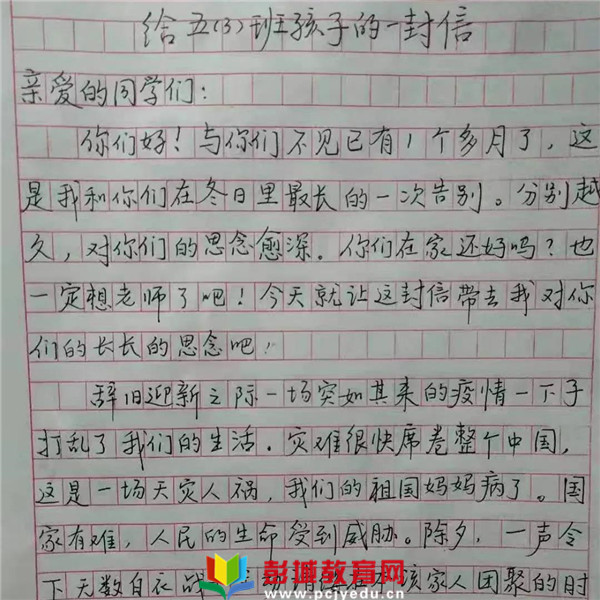 给五(3)班孩子的一封信
亲爱的同学们:
你们好!与你们不见已有1个多月了,这
是我和你们在冬日里最长的一次告别。分别越
久,对你们的思念愈深。你们在家还好吗?也
一定想老师了吧!今天就让这封信带去我对你
们的长长的思念吧!
辞旧迎新之际一场突如其来的疫情一下子
打乱了我们的生活。灾难很快席卷整个中国,
这是一场天灾人祸,我们的祖国妈妈病了。国
家有难,人民的生命受到威胁。除夕,一声令
下无数白衣战 该家人团聚的时
彭城教育网
www.pcjyedu.cn